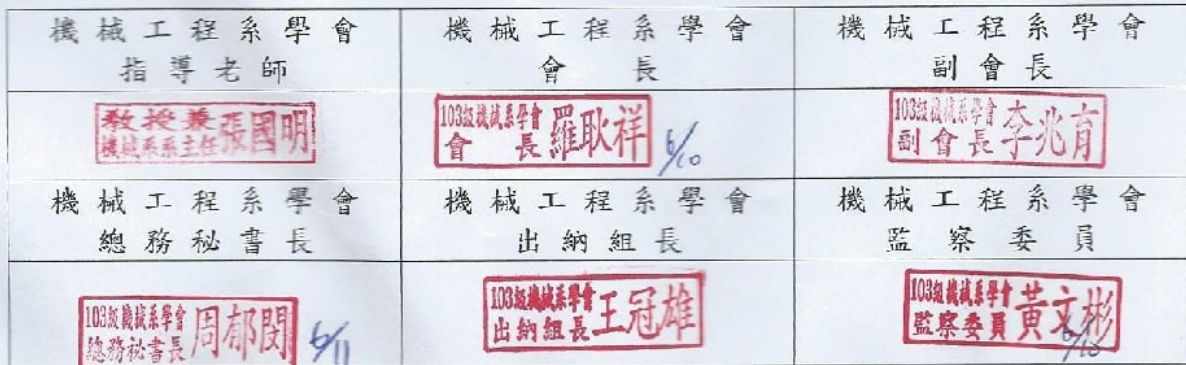 機械工程系學會
指導老師
機械工程系學會
會長
機械工程系學會
副會長
教授兼
機械系系主任
張國明
103級機械系學會
會長
羅耿祥
6/10
103級機械系學會
副會長
李兆育
機械工程系學會
總務秘書長
機械工程系學會
出納組長
機械工程系學會
監察委員
103級機械系學會
總務秘書長
周郁閔
6/11
103級機械系學會
出納組長
王冠雄
103級機械系學會
監察委員
黃文彬
6/10